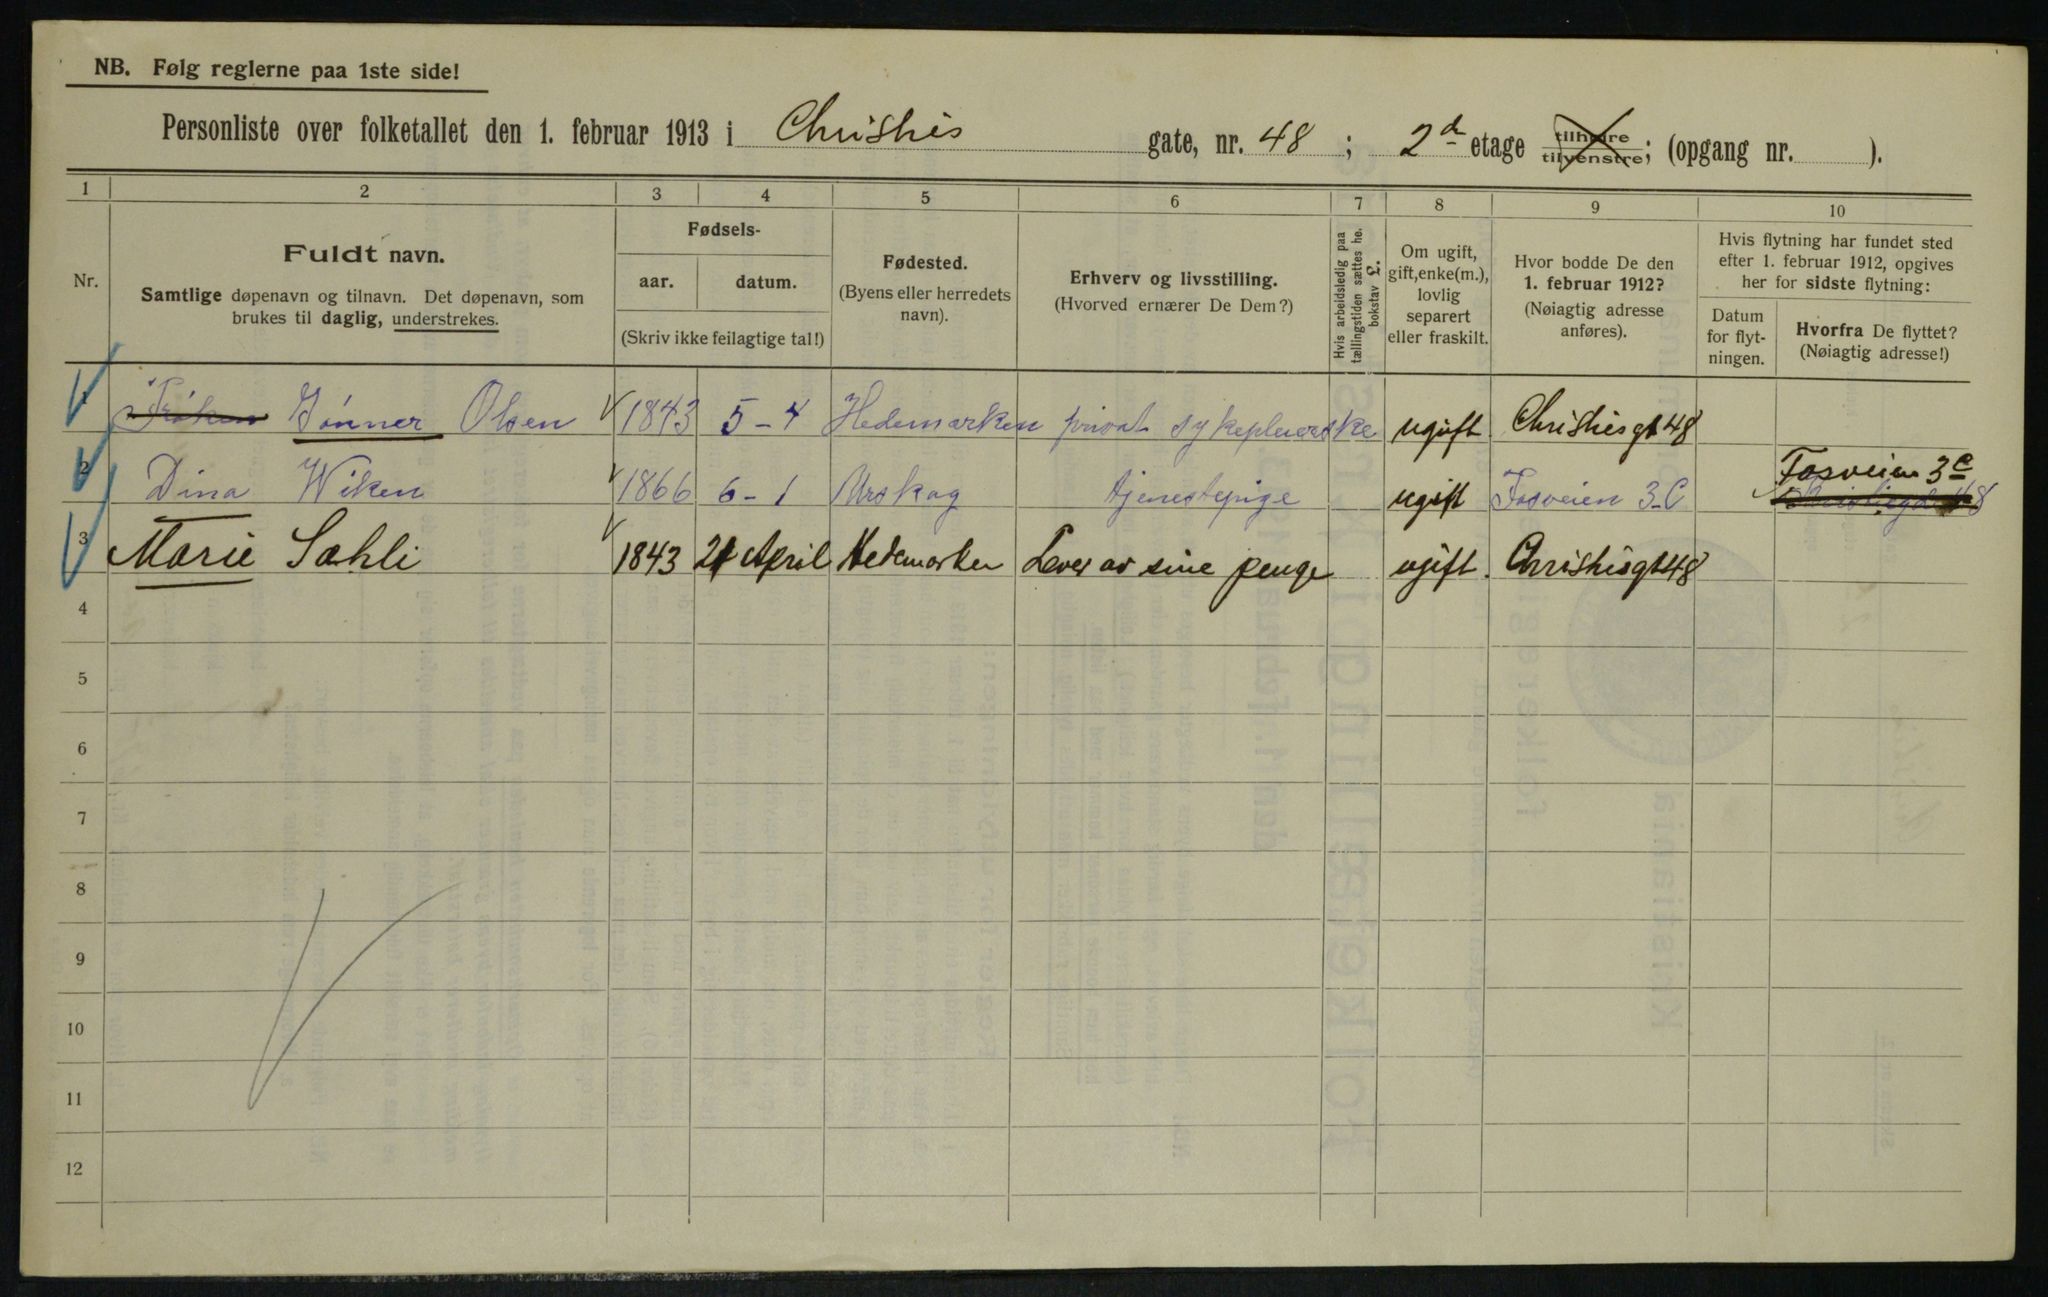 NB. Følg reglerne paa 1ste side!
Personliste over folketallet den 1. februar 1913 i Christies gate, nr. 48 ; 2de etage tilhøire tilvenstre; (opgang nr. ).
1 2 3 4 5 6 7 8 9 10
Nr.
Fuldt navn.
Samtlige døpenavn og tilnavn. Det døpenavn, som
brukes til daglig, understrekes.
Fødsels-
aar. datum.
(Skriv ikke feilagtige tal!)
Fødested.
(Byens eller herredets
navn).
Erhverv og livsstilling.
(Hvorved ernærer De Dem?)
Hvis arbeidsledig paa
tællingstiden sættes he.
bokstav L.
Om ugift,
gift, enke(m.),
lovlig
separert
eller fraskilt.
Hvor bodde De den
1. februar 1912?
(Nøiagtig adresse
anføres).
Hvis flytning har fundet sted
efter 1. februar 1912, opgives
her for sidste flytning:
Datum
for flyt-
ningen.
Hvorfra De flyttet?
(Nøiagtig adresse!)
1 Frøken Gønner Olsen 1843 5-4 Hedemarken privat sykepleierske ugift Christiesgt 48
2 Dina Wiken 1866 6-1 Urskog tjenestepige ugift Fosveien 3-C Fosveien 3c
3 Marie Sæhli 1843 21 April Hedemarken Lever av sine penge ugift. Christiesgt 48
4
5
6
7
8
9
10
11
12